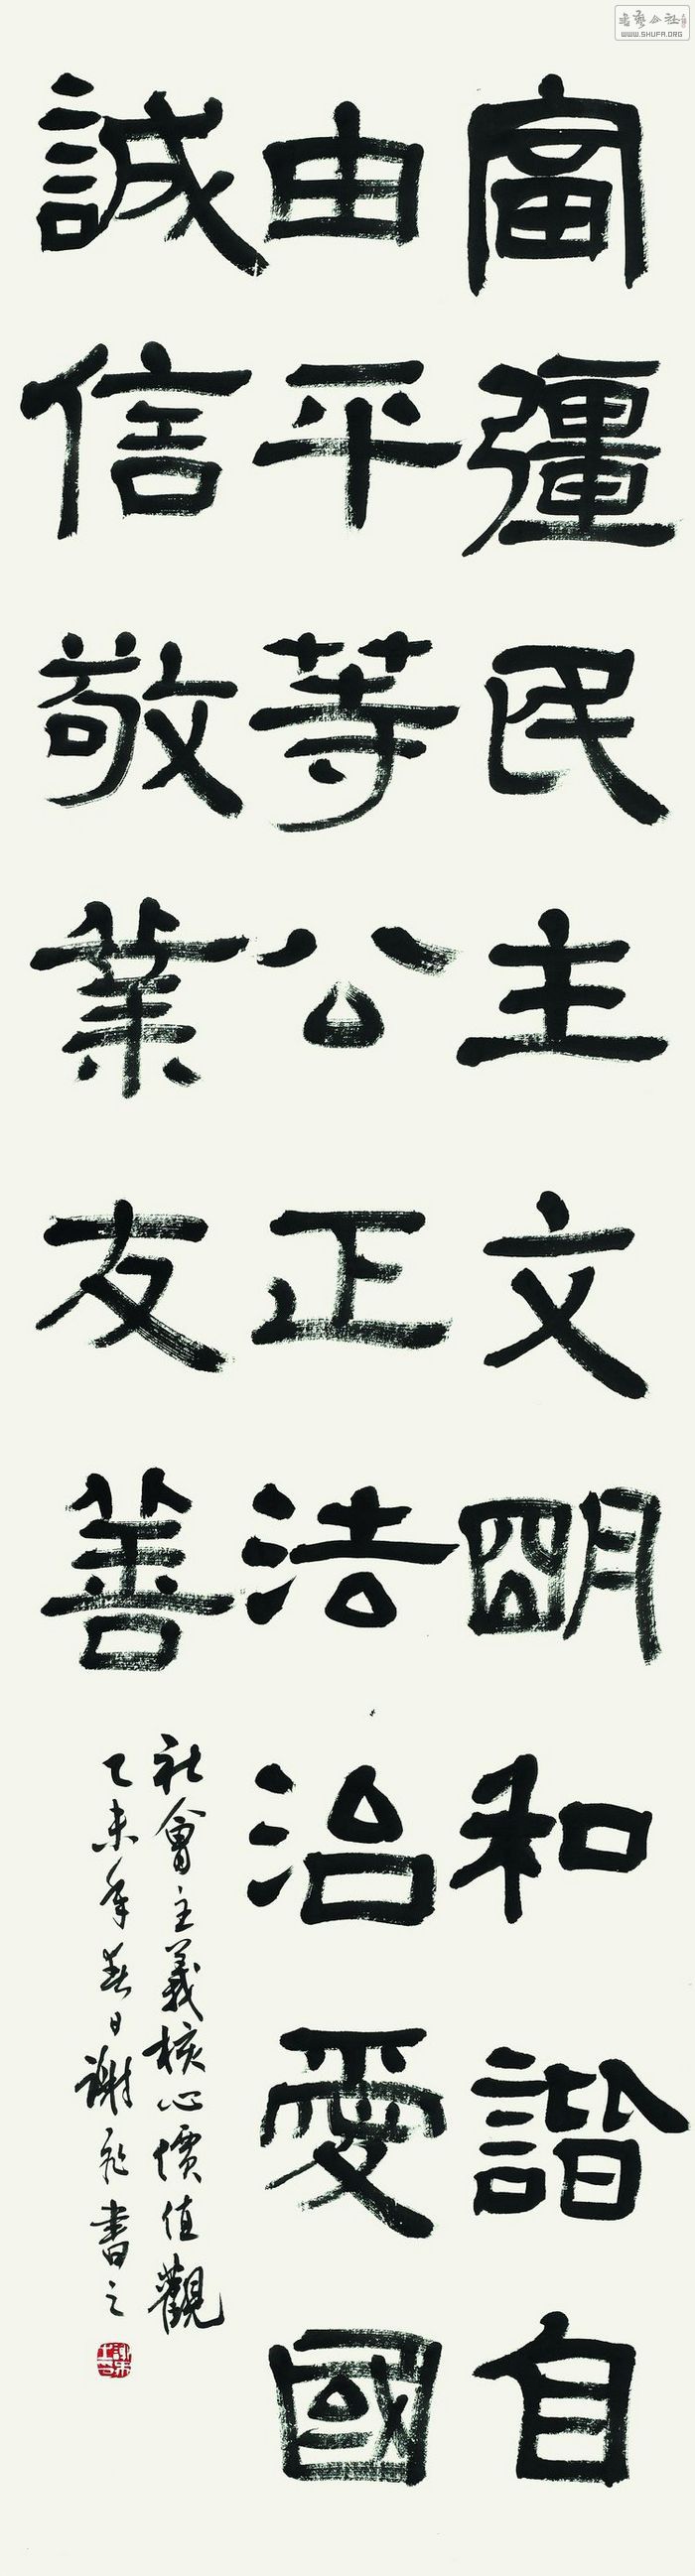 富彊民主文明和諧自
由平等公正法治愛國
誠信敬業友善
社會主義核心價值觀
乙未年春日謝飛書之
WWW.SHUFA.ORG